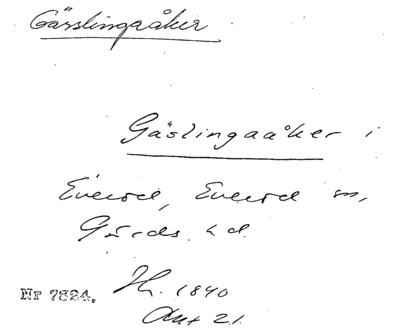 Gässlingåker
Gäslingaåker i
Everöd, Everöd sn,
Gärds hd
Nr 7824. Ht. 1840
Akt 21.